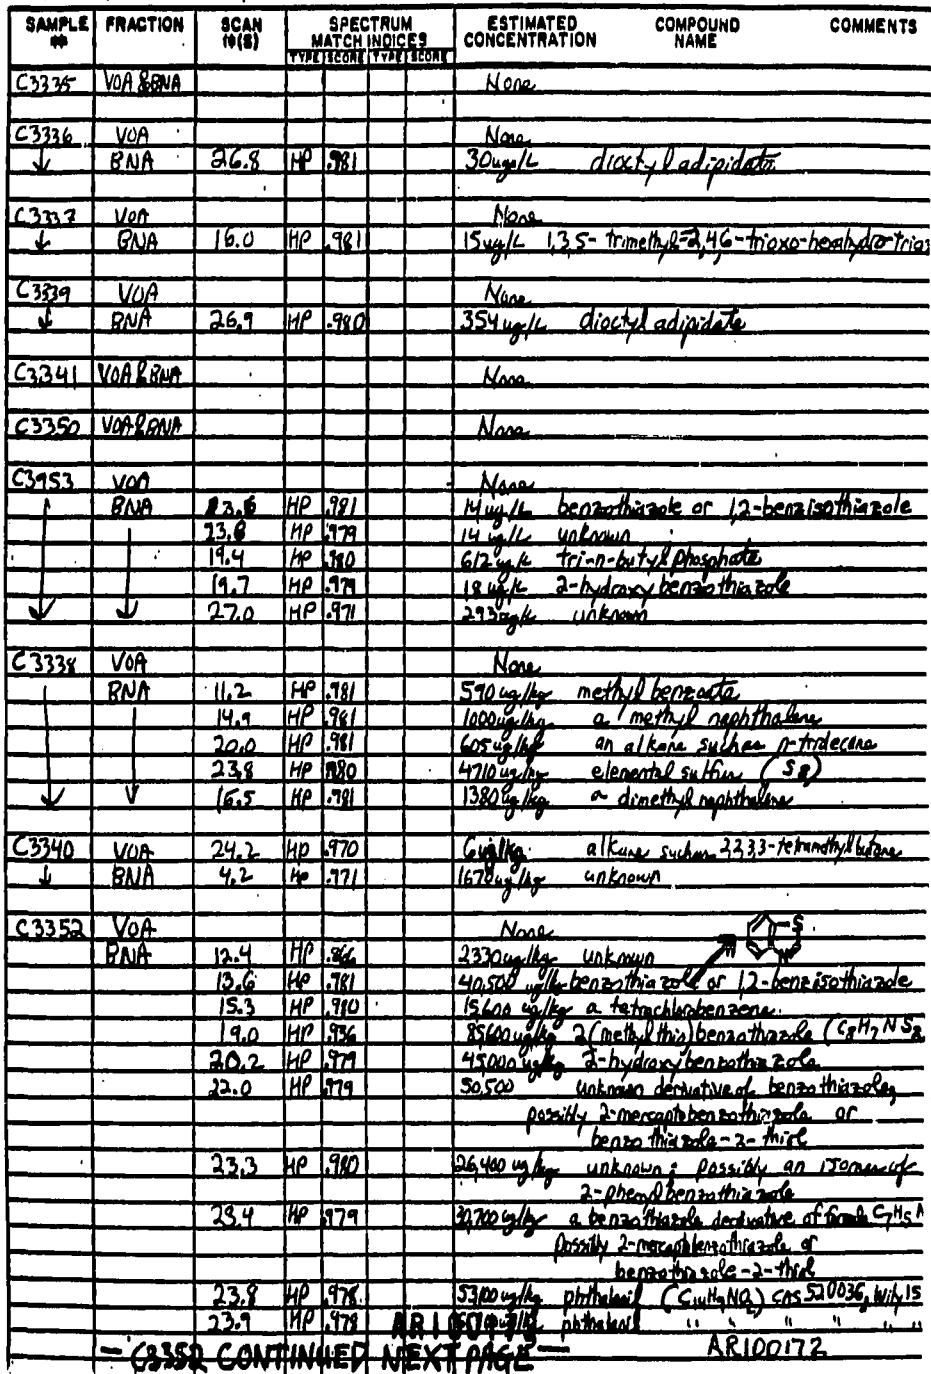 SAMPLE # FRACTION SCAN #(S) SPECTRUM MATCH INDICES ESTIMATED CONCENTRATION COMPOUND NAME COMMENTS
TYPE SCORE TYPE SCORE
C3335 VOA & BNA None
C3336 VOA None
↓ BNA 26.8 HP .981 30ug/L dioctyl adipidate
C3337 VOA None
↓ BNA 16.0 HP .981 15ug/L 1,3,5-trimethyl-2,4,6-trioxo-hexahydro-trioz
C3339 VOA None
↓ BNA 26.9 HP .980 354ug/L dioctyl adipidate
C3341 VOA & BNA None
C3350 VOA & BNA None
C3953 VOA None
BNA HP .981 14ug/L benzothiazole or 1,2-benzisothiazole
HP .979 14ug/L unknown
19.4 HP .980 612ug/L tri-n-butyl phosphate
19.7 HP .979 18ug/L 2-hydroxy benzothiazole
27.0 HP .971 293ug/L unknown
C3338 VOA None
BNA 11.2 HP .981 590ug/kg methyl benzoate
14.9 HP .981 1000ug/kg a methyl naphthalene
20.0 HP .981 605ug/kg an alkane such as n-tridecane
23.8 HP .980 4710ug/kg elemental sulfur (S8)
16.5 HP .981 1380ug/kg a dimethyl naphthalene
C3340 VOA 24.2 HP .970 6ug/kg alkane such as 2,2,3,3-tetramethyl butane
↓ BNA 4.2 HP .971 1670ug/kg unknown
C3352 VOA None
BNA 12.4 HP 2330ug/kg unknown
13.6 HP .981 40,500 ug/kg benzothiazole or 1,2-benzisothiazole
15.3 HP .980 15,600 ug/kg a tetrachlorobenzene
19.0 HP .936 85,600ug/kg 2(methylthio)benzothiazole (C8H7NS2
20.2 HP .979 45,000ug/kg 2-hydroxybenzothiazole
22.0 HP .979 50,500 unknown derivative of benzothiazole,
possibly 2-mercaptobenzothiazole or
benzothiazole-2-thiol
23.3 HP .980 26,400 ug/kg unknown; possibly an isomer of
2-phenylbenzothiazole
23.4 HP .979 ug/kg a benzothiazole derivative of formula C7H5N
possibly 2-mercaptobenzothiazole or
benzothiazole-2-thiol
23.8 HP .978 ug/kg (C14H9NO2) CAS 520036, Wily 15
23.9 HP .978 " " " " "
- C3352 CONTINUED NEXT PAGE - AR100172